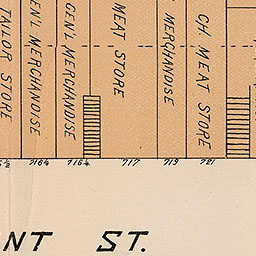 TAILOR STORE
GEN'L MERCHANDISE
GEN'L MERCHANDISE
MEAT STORE
MERCHANDISE
CH MEAT STORE
716¾ 716¼ 717 719 721
NT ST.